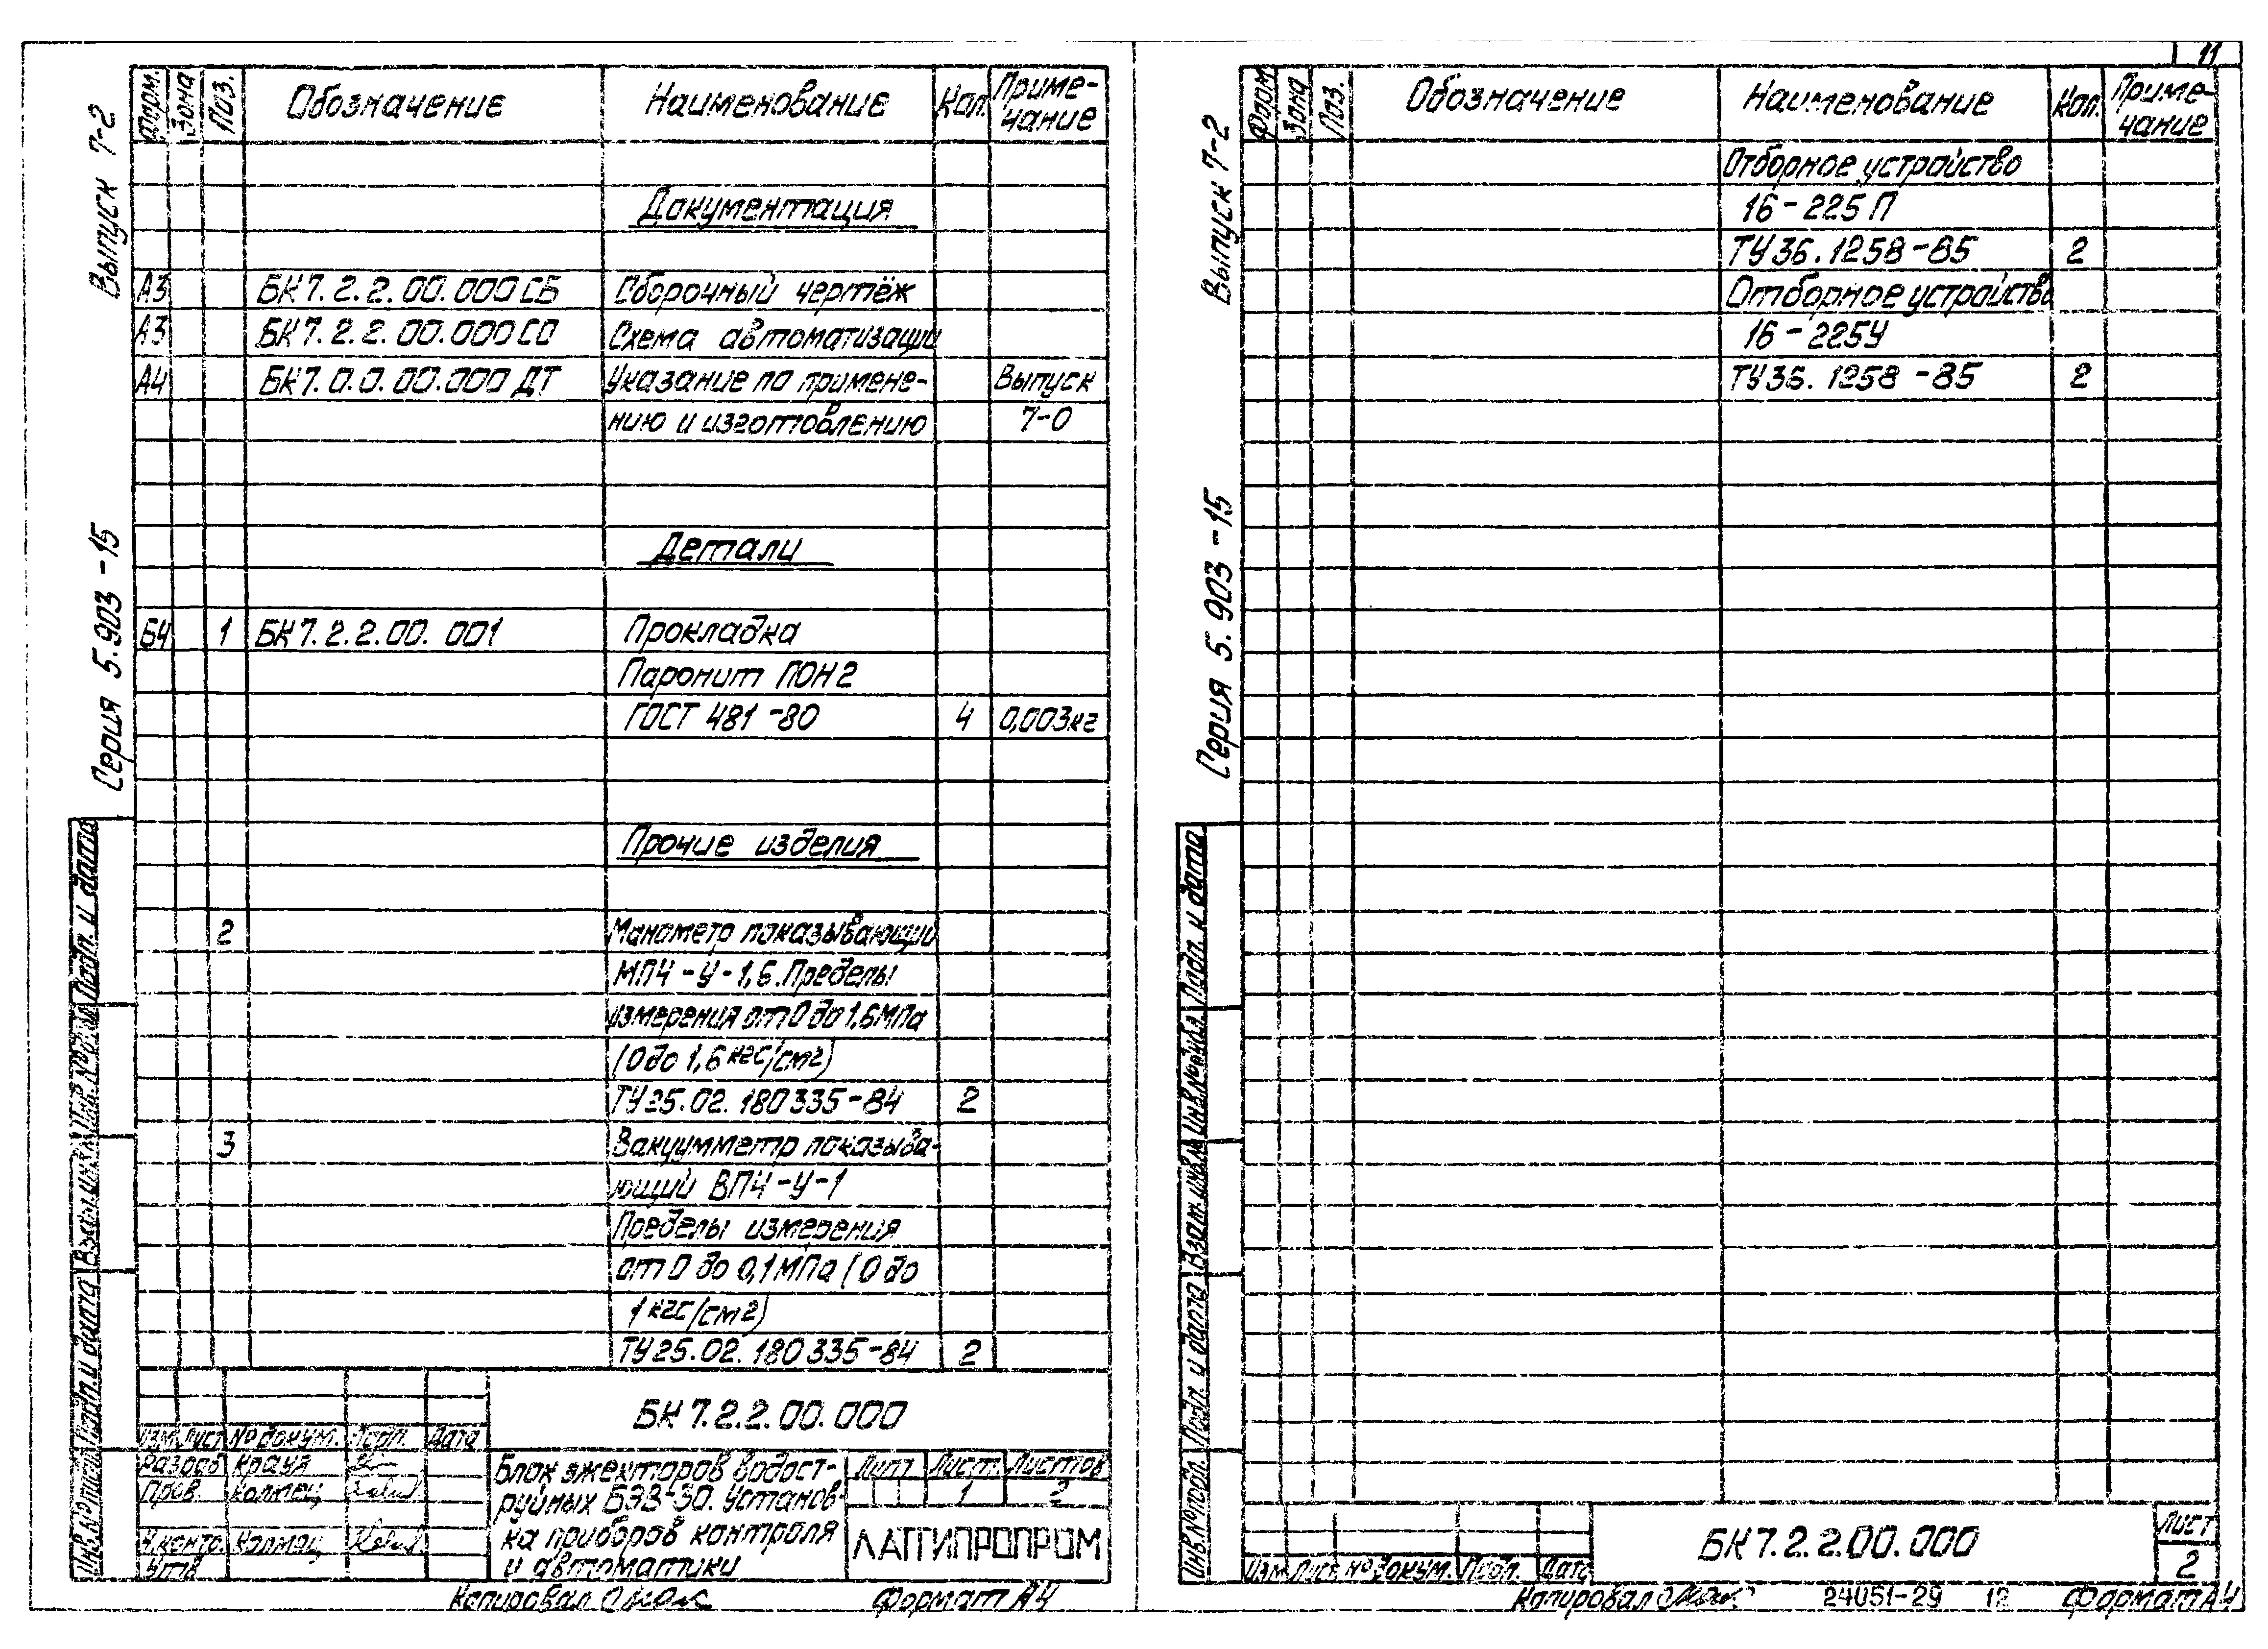 11
Выпуск 7-2
Серия 5.903-15
Форм. Зона Поз. Обозначение Наименование Кол. Приме-
чание
Документация
А3 БК 7.2.2.00.000 СБ Сборочный чертёж
А3 БК 7.2.2.00.000 СО Схема автоматизации
А4 БК 7.0.0.00.000 ДТ Указание по примене- Выпуск
нию и изготовлению 7-0
Детали
Б4 1 БК 7.2.2.00.001 Прокладка
Паронит ПОН 2
ГОСТ 481-80 4 0,003кг
Прочие изделия
2 Манометр показывающий
МП4-У-1,6. Пределы
измерения от 0 до 1,6 МПа
(0 до 1,6 кгс/см2)
ТУ 25.02.180335-84 2
3 Вакуумметр показыва-
ющий ВП4-У-1
Пределы измерения
от 0 до 0,1 МПа (0 до
1 кгс/см2)
ТУ 25.02.180335-84 2
Инв.№ подл. Подп. и дата Взам. инв.№ Инв.№ дубл. Подп. и дата
БК 7.2.2.00.000
Изм. Лист № докум. Подп. Дата
Разраб Крауя
Пров. Калмец
Н.контр. Калмец
Утв
Блок эжекторов водост-
руйных БЭВ-30. Установ-
ка приборов контроля
и автоматики
Лит. Лист. Листов
1 2
ЛАТГИПРОПРОМ
Копировал Формат А4
Выпуск 7-2
Серия 5.903-15
Форм Зона Поз. Обозначение Наименование Кол. Приме-
чание
Отборное устройство
16-225П
ТУ 36.1258-85 2
Отборное устройство
16-225У
ТУ 36.1258-85 2
Инв.№ подл. Подп. и дата Взам. инв.№ Инв.№ дубл. Подп. и дата
Изм. Лист № докум. Подп. Дата
БК 7.2.2.00.000
Лист
2
Копировал 24051-29 12 Формат А4